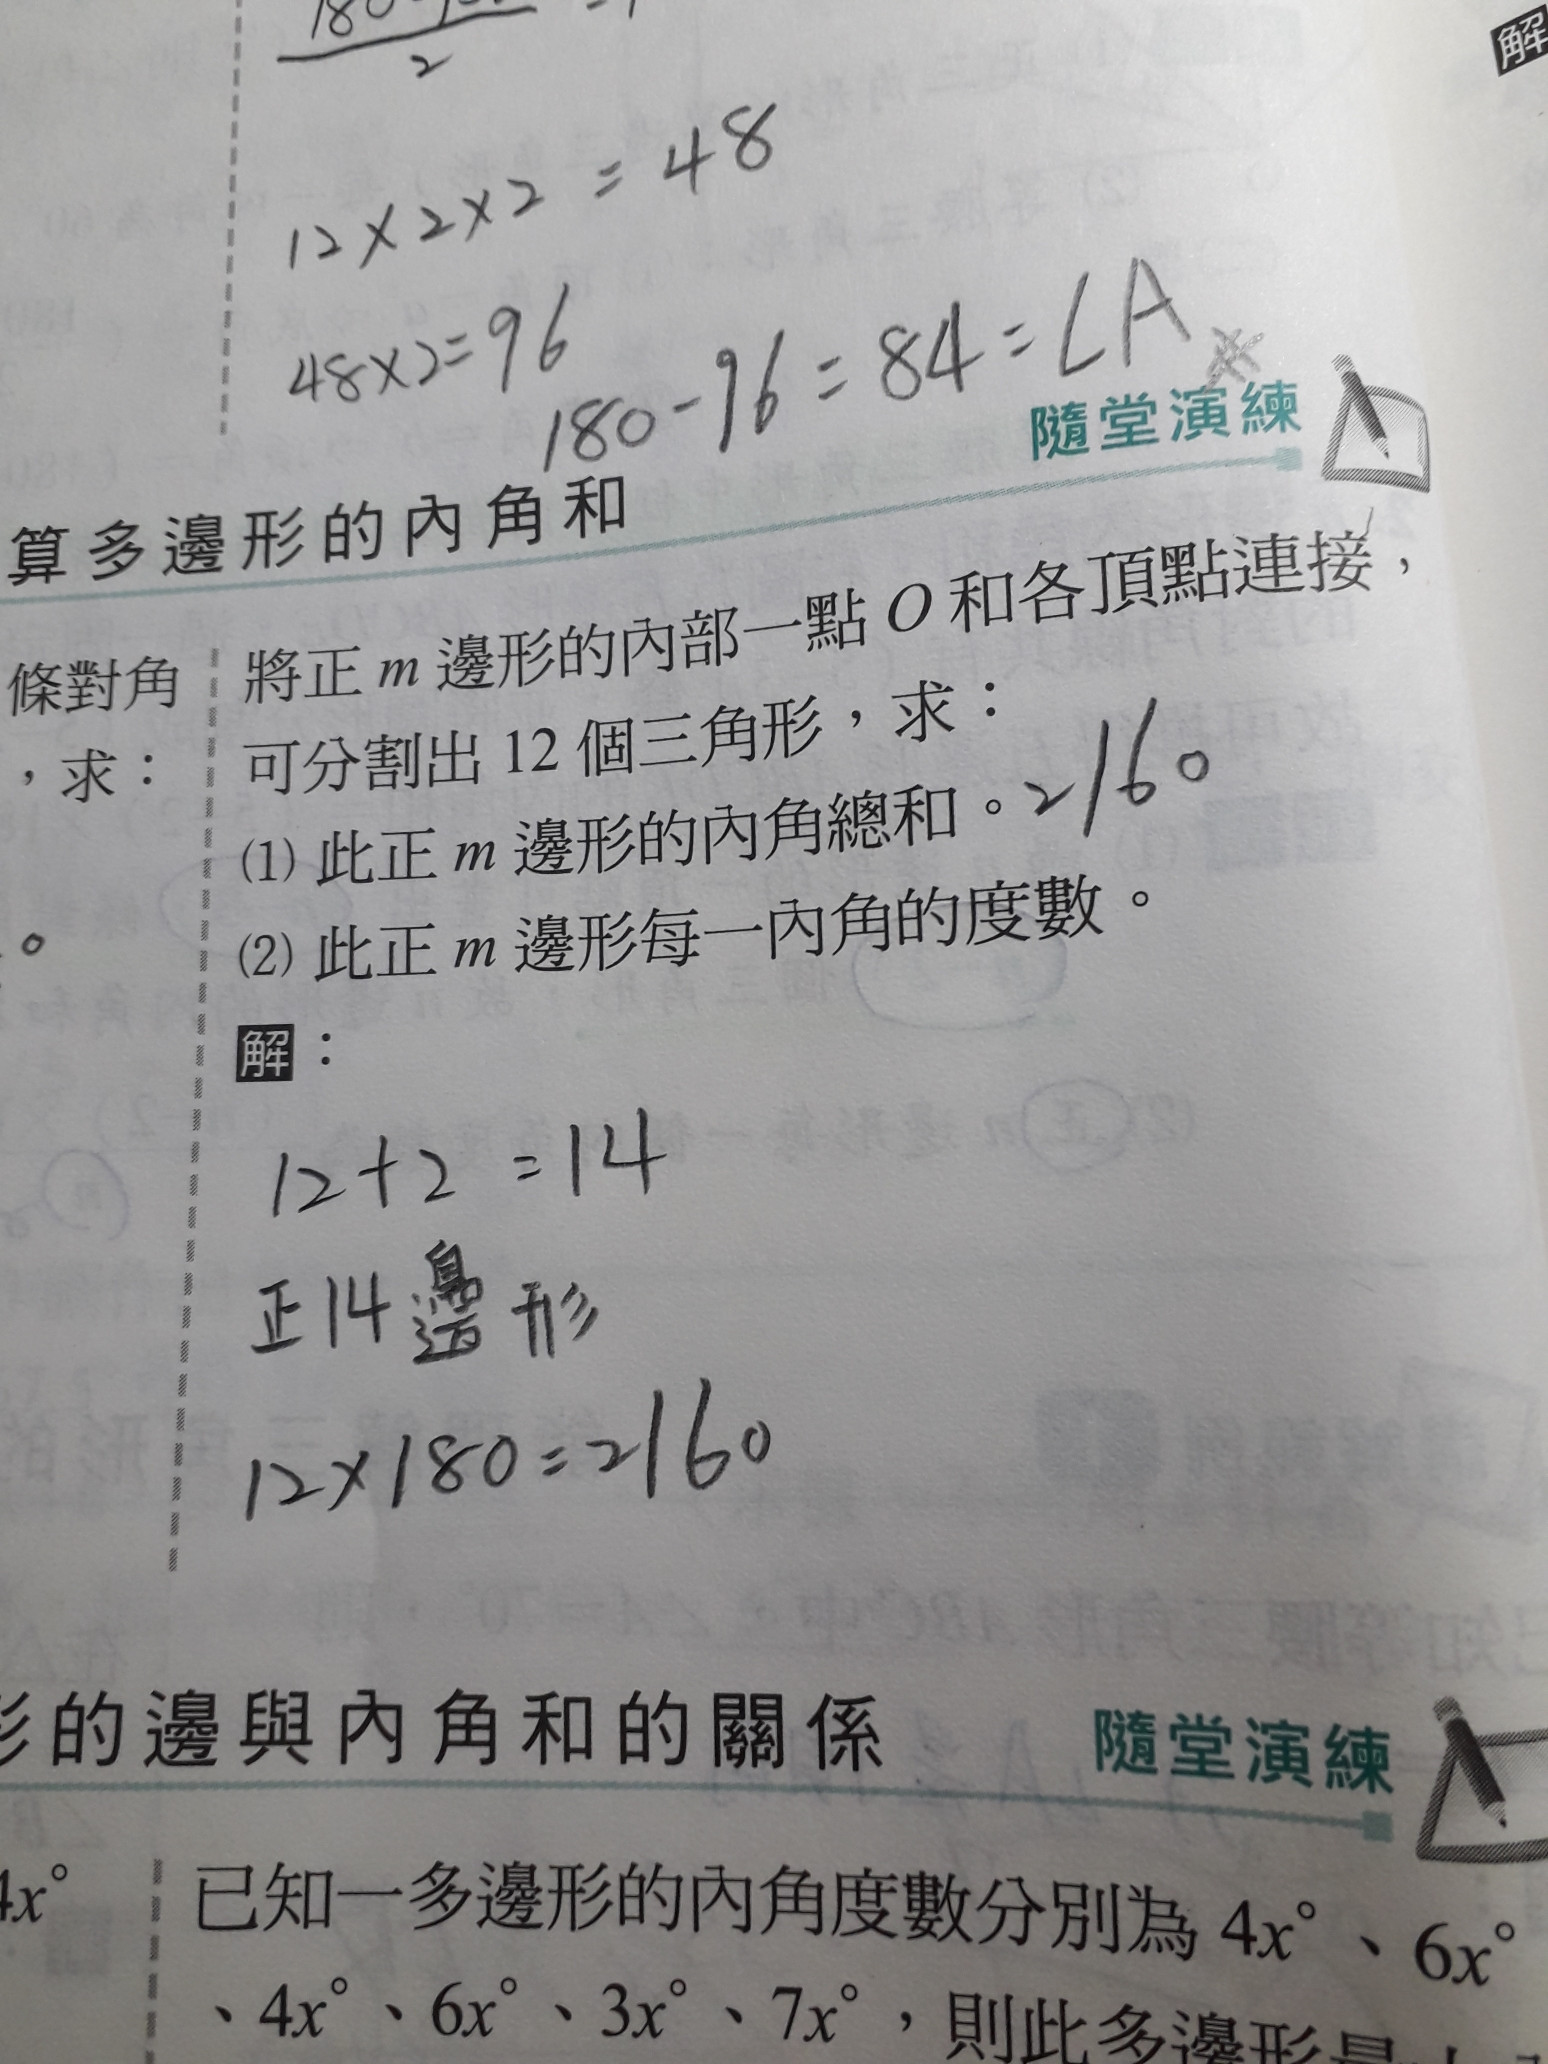 2
12×2×2=48
48×2=96
180-96=84=∠A
解
隨堂演練
算多邊形的內角和
條對角
，求：
。
將正 m 邊形的內部一點 O 和各頂點連接，
可分割出 12 個三角形，求：
(1) 此正 m 邊形的內角總和。2160
(2) 此正 m 邊形每一內角的度數。
解：
12+2=14
正14邊形
12×180=2160
形的邊與內角和的關係
隨堂演練
4x°
已知一多邊形的內角度數分別為 4x°、6x°
、4x°、6x°、3x°、7x°，則此多邊形最